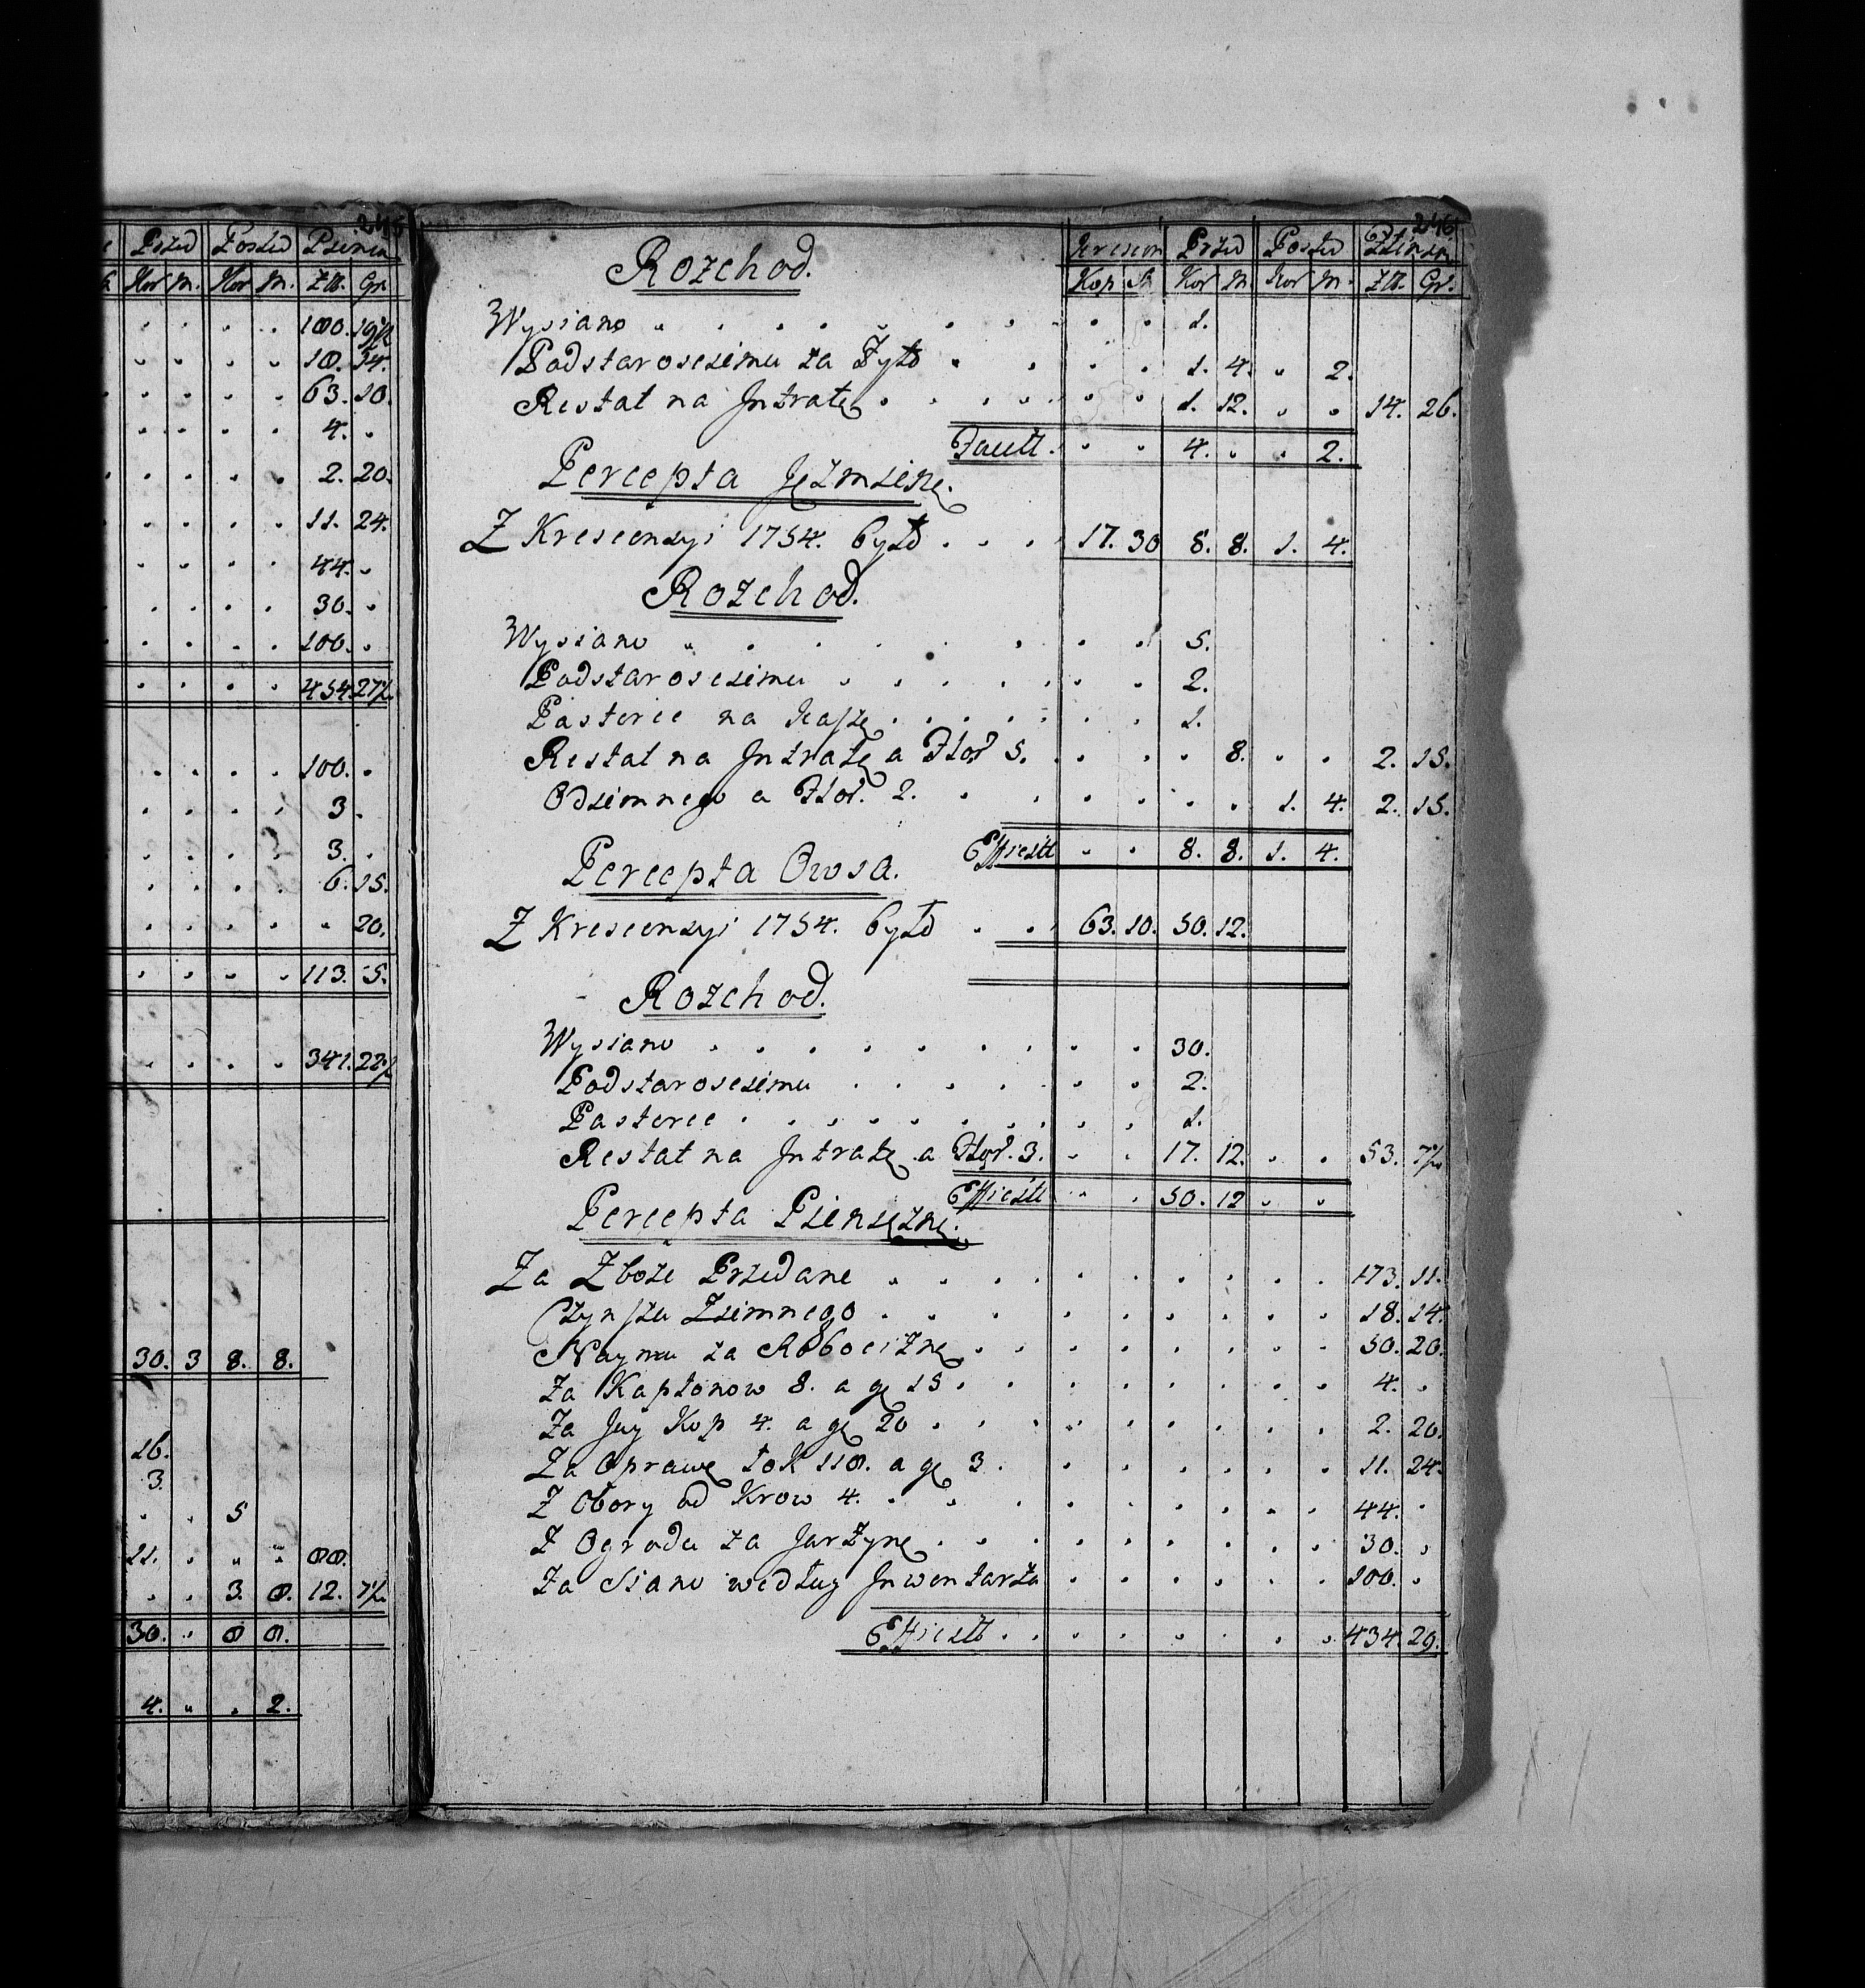 245
Przed Poslad Pieniędz
Kor M. Kor M. Zll. Gr.
100. 19½
18. 14.
63. 10.
4.
2. 20.
11. 24.
44.
30.
100.
454 27½
100.
3
3.
6. 15.
20.
113. 5.
341. 22½
30. 3 8. 8.
16.
3.
5
11. 88.
3. 8. 12. 7½
30. 8 8.
4. 2.
246
Rozchod.
Krescen Przed Poslad
Kop S Kor M. Kor M. Zll. Gr.
Wysiano 1.
Podstarosciemu za Zyto 1. 4. 2.
Restat na Intratę 1. 12. 14. 26.
Facitt. 4. 2.
Percepta Jęzmienię.
Z Krescensyi 1754. było 17. 30 8. 8. 1. 4.
Rozchod.
Wysiano 5.
Podstarosciemu 2.
Pasterce na kaszę 1.
Restat na Intratę a Flor 5. 8. 2. 15.
Odziemnego a Flor. 2. 1. 4. 2. 15.
Efficitt 8. 8. 1. 4.
Percepta Owsa.
Z Krescensyi 1754. było 63. 10. 50. 12.
Rozchod.
Wysiano 30.
Podstarosciemu 2.
Pasterce 1.
Restat na Intratę a Flor. 3. 17. 12. 53. 7½
Efficitt 50. 12
Percepta Pieniężnę.
Za Zboże Przedane 173. 11.
Czynszu Ziemnego 18. 14.
Naymu za Robociznę 50. 20.
Za Kapłonow 8. a gę 15. 4.
Za Jay Kop 4. a gę 20 2. 20.
Za Oprawę Łok 118. a gę 3. 11. 24.
Z Obory od Krow 4. 44.
Z Ogrodu za Jarzynę 30.
Za Siano według Inwentarza 100.
Efficitt 434. 29.